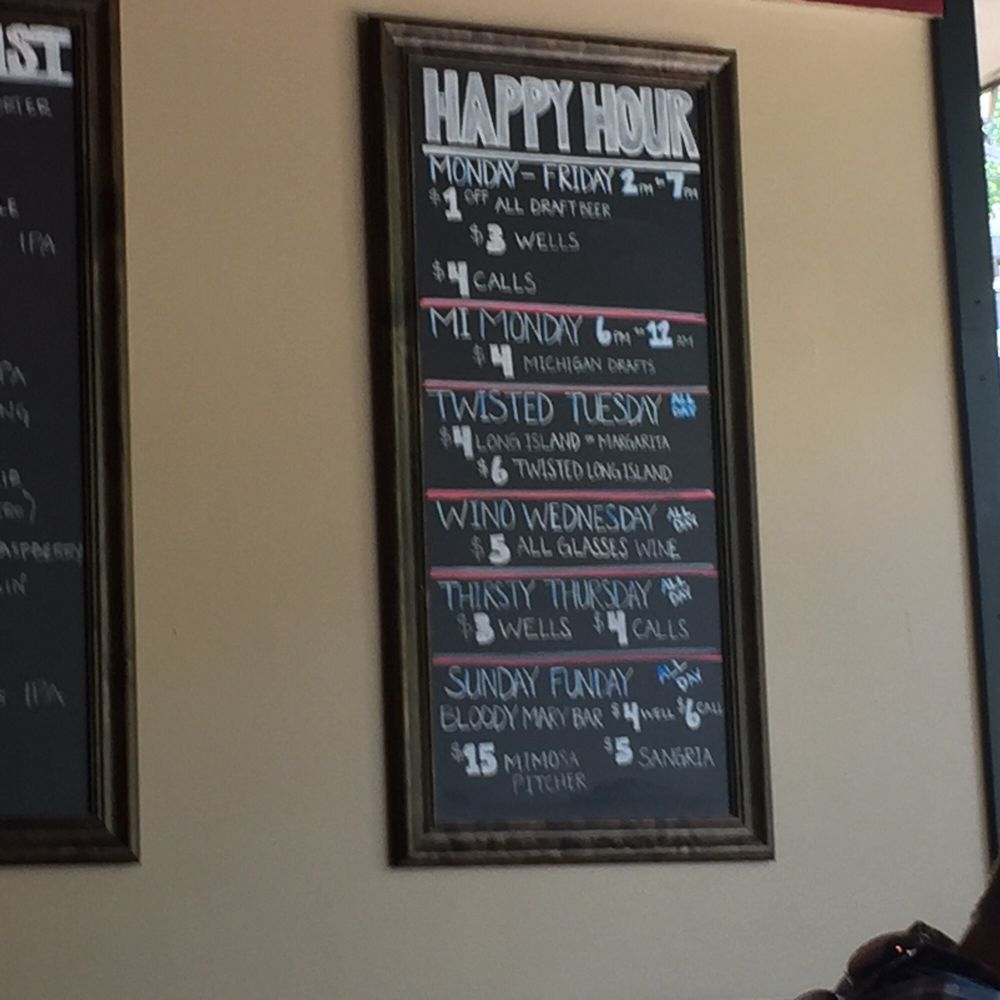 IPA
IPA
HAPPY HOUR
MONDAY - FRIDAY 2PM TO 7PM
$1 OFF ALL DRAFT BEER
$3 WELLS
$4 CALLS
MI MONDAY 6PM TO 12AM
$4 MICHIGAN DRAFTS
TWISTED TUESDAY ALL DAY
$4 LONG ISLAND OR MARGARITA
$6 TWISTED LONG ISLAND
WINO WEDNESDAY ALL DAY
$5 ALL GLASSES WINE
THIRSTY THURSDAY ALL DAY
$3 WELLS $4 CALLS
SUNDAY FUNDAY ALL DAY
BLOODY MARY BAR $4 WELL $6 CALL
$15 MIMOSA $5 SANGRIA
PITCHER